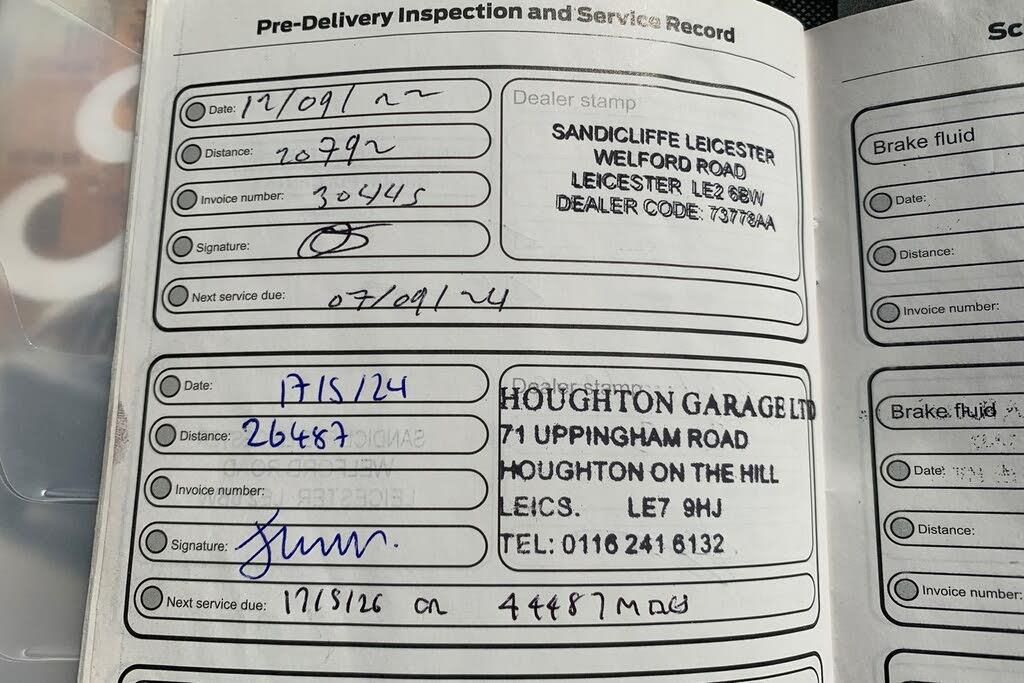 Pre-Delivery Inspection and Service Record
Date: 12/09/22
Distance: 20792
Invoice number: 30445
Signature:
Next service due: 07/09/24
Dealer stamp
SANDICLIFFE LEICESTER
WELFORD ROAD
LEICESTER LE2 6BW
DEALER CODE: 73778AA
Date: 17/5/24
Distance: 26487
Invoice number:
Signature:
Next service due: 17/5/26 OR 44487 MILES
Dealer stamp
HOUGHTON GARAGE LTD
71 UPPINGHAM ROAD
HOUGHTON ON THE HILL
LEICS. LE7 9HJ
TEL: 0116 241 6132
Sc
Brake fluid
Date:
Distance:
Invoice number:
Brake fluid
Date:
Distance:
Invoice number: